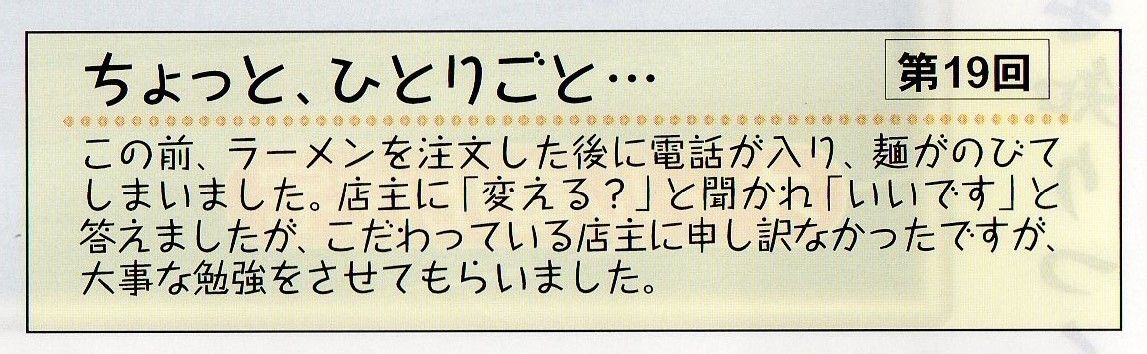 ちょっと、ひとりごと…
第19回
この前、ラーメンを注文した後に電話が入り、麺がのびて
しまいました。店主に「変える？」と聞かれ「いいです」と
答えましたが、こだわっている店主に申し訳なかったですが、
大事な勉強をさせてもらいました。